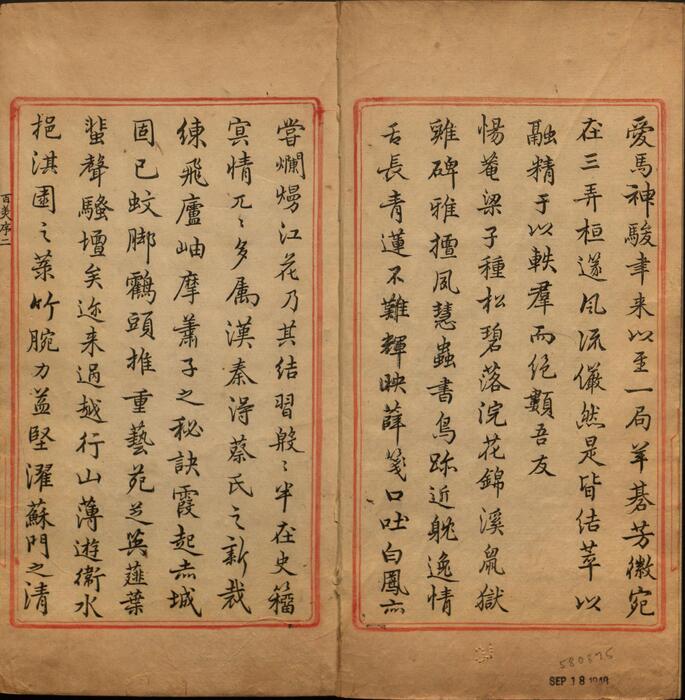 愛馬神駿聿来以至一局羊碁芳徽宛
在三弄桓邃风流儼然是皆结萃以
融精于以軼羣而绝類吾友
惕菴梁子種松碧落浣花錦溪嵐獄
雞碑雅擅夙慧蟲書鳥跡近躭逸情
舌長青蓮不難輝映薛箋口吐白鳳亦
嘗爛熳江花乃其结習般〻半在史籀
寘情兀〻多属漢秦得蔡氏之新裁
练飛廬岫摩蕭子之秘訣霞起赤城
固已蚊脚鸛頭推重藝苑芝英薤葉
蜚聲騷壇矣迩来過越行山薄遊衞水
挹淇園之菉竹腕力益堅濯蘇門之清
百美序二
580875
SEP 18 1940